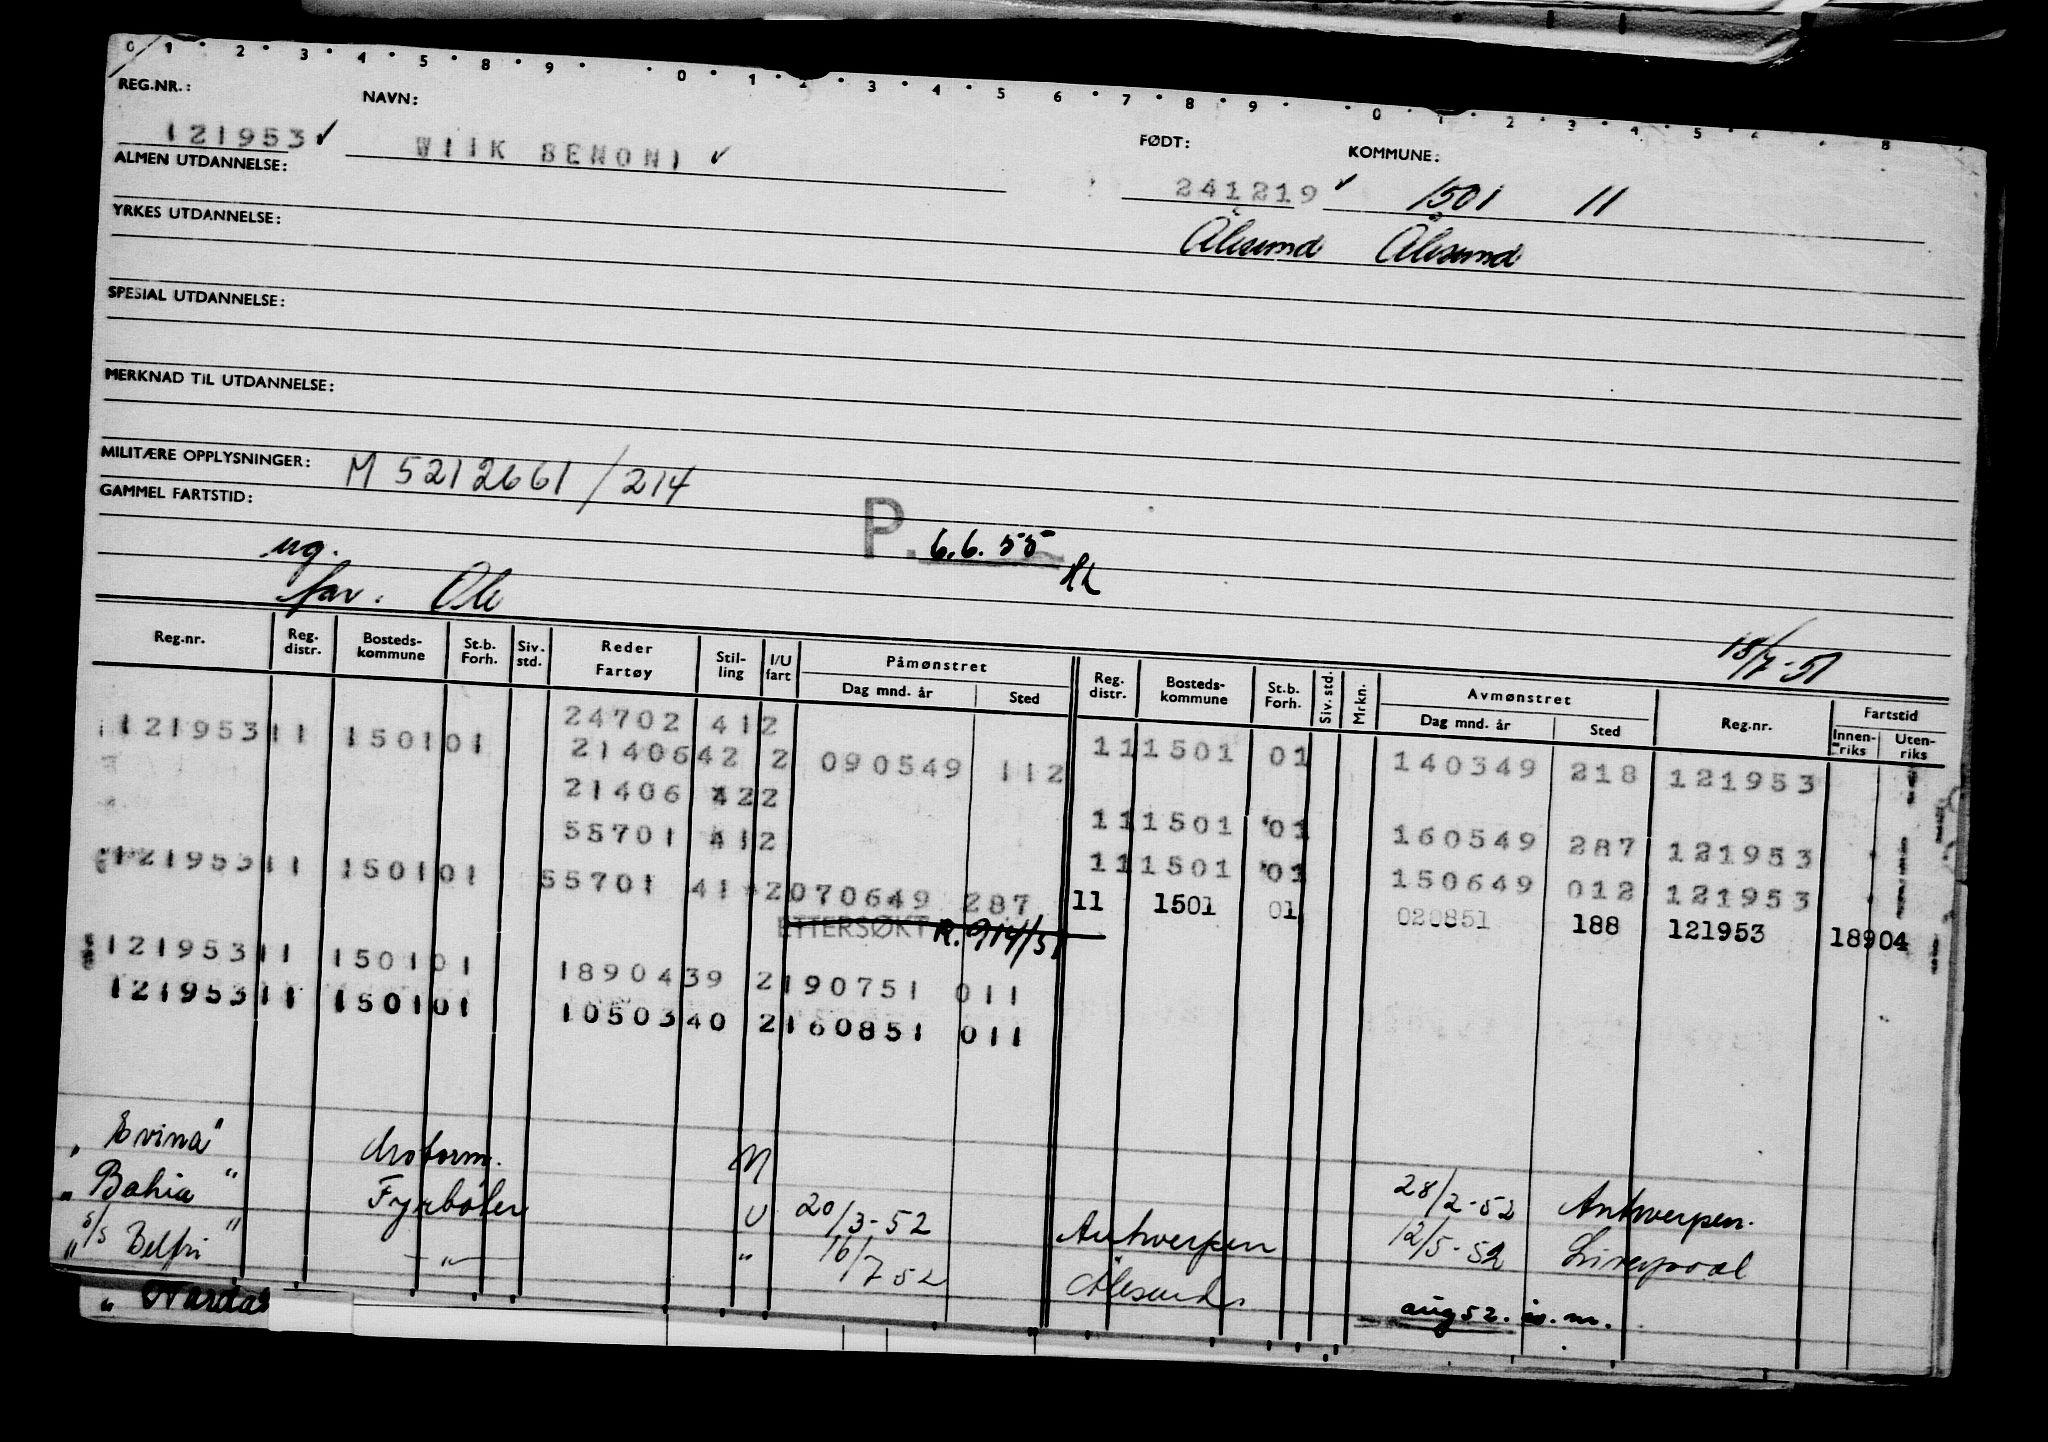 0 1 2 3 4 5 8 9 0 1 2 3 4 5 6 7 8 9 0 1 2 3 4 5 8
REG.NR.: NAVN: FØDT: KOMMUNE:
121953 ✓ WIIK BENONI ✓ 241219 ✓ 1501 11
ALMEN UTDANNELSE:
Ålesund Ålesund
YRKES UTDANNELSE:
SPESIAL UTDANNELSE:
MERKNAD TIL UTDANNELSE:
MILITÆRE OPPLYSNINGER: M 5212661/214
GAMMEL FARTSTID:
P. 6.6.55
ug.
far. Ole
18/7-51
Reg.nr. Reg. distr. Bosteds-kommune St.b. Forh. Siv. std. Reder Fartøy Stil-ling I/U fart Påmønstret Dag mnd. år Sted Reg. distr. Bosteds-kommune St.b. Forh. Siv. std. Mrkn. Avmønstret Dag mnd. år Sted Reg.nr. Fartstid Innen-riks Uten-riks
121953 11 1501 01 24702 41 2 11 1501 01 140349 218 121953
21406 42 2 090549 112
21406 42 2 11 1501 01 160549 287 121953
55701 41 2 11 1501 01 150649 012 121953
121953 11 1501 01 55701 41 2 070649 287 11 1501 01 020851 188 121953 18904
ETTERSØKT R. 914/51
121953 11 1501 01 18904 39 2 190751 011
121953 11 1501 01 10503 40 2 160851 011
" Evina" Motorm. N 28/2-52 Antwerpen.
" Bahia " Fyrbøter U 20/3-52 Antwerpen 12/5-52 Liverpool
" s/s Belfri " -"- " 16/7 52 Ålesund aug 52. is. m.
" Nardas